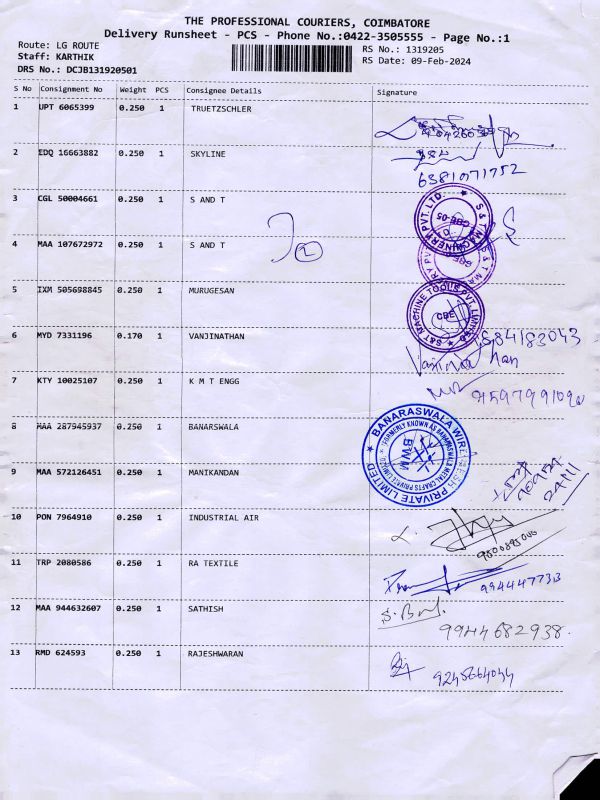 THE PROFESSIONAL COURIERS, COIMBATORE
Delivery Runsheet - PCS - Phone No.:0422-3505555 - Page No.:1
Route: LG ROUTE
Staff: KARTHIK
DRS No.: DCJB131920501
RS No.: 1319205
RS Date: 09-Feb-2024
S No Consignment No Weight PCS Consignee Details Signature
1 UPT 6065399 0.250 1 TRUETZSCHLER
2 EDQ 16663882 0.250 1 SKYLINE
6381071752
3 CGL 50004661 0.250 1 S AND T
4 MAA 107672972 0.250 1 S AND T
2
S&T MACHINERY PVT. LTD.
CBE-05
5 IXM 505698845 0.250 1 MURUGESAN
S&T MACHINE TOOLS PVT. LIMITED
CBE
6 MYD 7331196 0.170 1 VANJINATHAN
7 KTY 10025107 0.250 1 K M T ENGG
8 MAA 287945937 0.250 1 BANARSWALA
BANARASWALA WIRE MESH PRIVATE LIMITED
BWM
9 MAA 572126451 0.250 1 MANIKANDAN
10 PON 7964910 0.250 1 INDUSTRIAL AIR
11 TRP 2080586 0.250 1 RA TEXTILE
12 MAA 944632607 0.250 1 SATHISH
9944682938.
13 RMD 624593 0.250 1 RAJESHWARAN